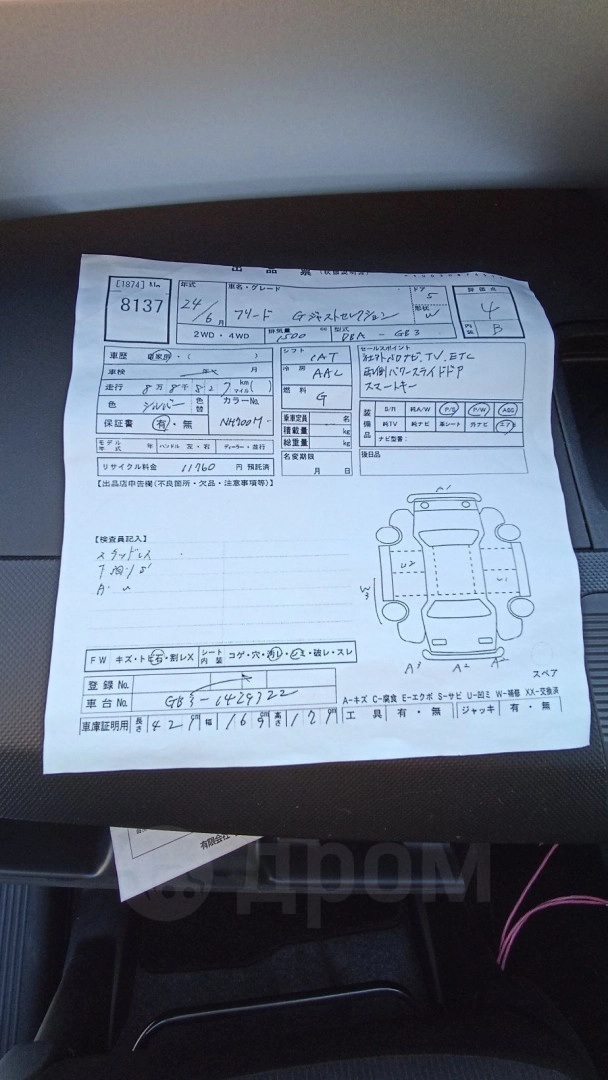 出品票(状態説明書)
[1874] No.
8137
年式 24/6月
車名・グレード フリード Gジャストセレクション
ドア 5
形状 W
評価点 4
内装 B
2WD・4WD
排気量 1500 cc
型式 DBA-GB3
車歴 自家用・( )
車検 年 月
走行 8万8千 km( ) マイル( )
色 シルバー
色替
カラーNo. NH700M
保証書 有・無
シフト IAT
冷房 AAC
燃料 G
乗車定員 名
積載量 kg
総重量 kg
名変期限 月 日
セールスポイント
社外メモリナビ、TV、ETC
両側パワースライドドア
スマートキー
装備品
S/R 純A/W P/S P/W ABS
純TV 純ナビ 革シート 外ナビ エアB
ナビ型番:
後日品
モデル年式 年 ハンドル 左・右 ディーラー・並行
リサイクル料金 11760 円 預託済
【出品店申告欄(不良箇所・欠品・注意事項等)】
【検査員記入】
スタッドレス
A1
U2
U1
W3
A3 A2 A2
スペア
FW キズ・トビ石・割レX
シート内装 コゲ・穴・汚レ・シミ・破レ・スレ
登録No.
車台No. GB3-1429322
A-キズ C-腐食 E-エクボ S-サビ U-凹ミ W-補修 XX-交換済
車庫証明用 長さ 429 cm 幅 169 cm 高さ 171 cm
工具 有・無 ジャッキ 有・無
有限会社
дром